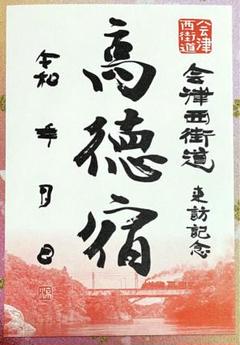 会津
西街道
会津西街道
来訪記念
高徳宿
令和 年 月 日